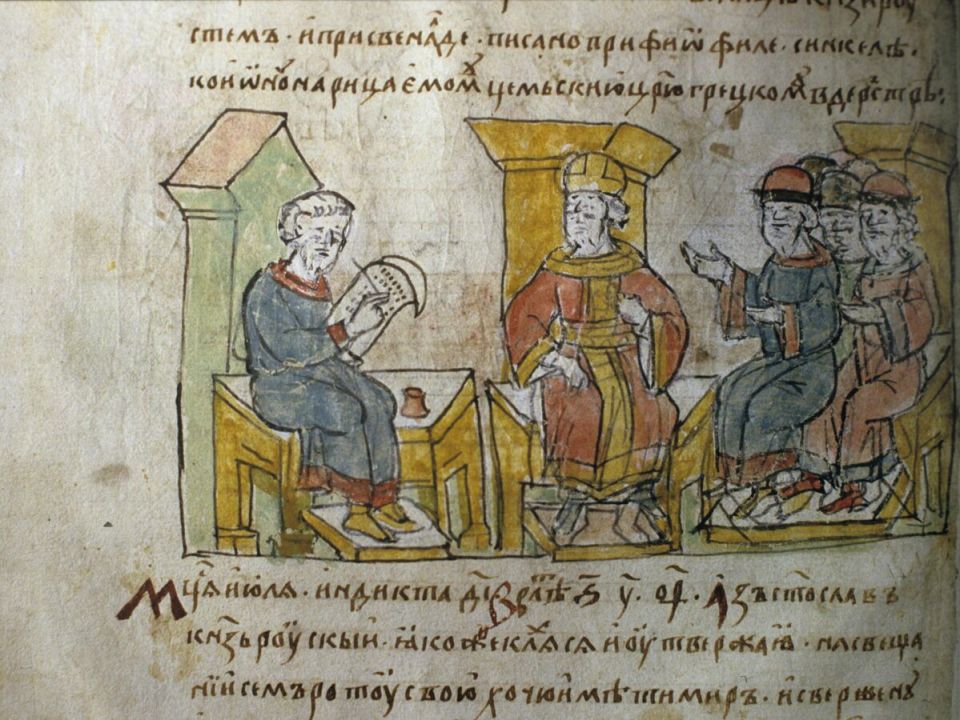 стемъ · и при свенлⷣе · писано при фиѿ филе · синкелѣ ·
ко иѡ҃ноу нарицаемомⷹ цемьскию црⷭ҇ю грецкомⷹ въ дерьстрѣ ·
Мцⷭ҇а июлѧ · индикта д҃і · в лѣⷮ · ѕ҃ · у҃ · о҃ѳ · Азъ ст҃ославъ
кнѧзь роускыи · ꙗко же клѧхсѧ и оутвержаю · на свеща
нии семъ ротоу свою хочю имѣти миръ · и свершену